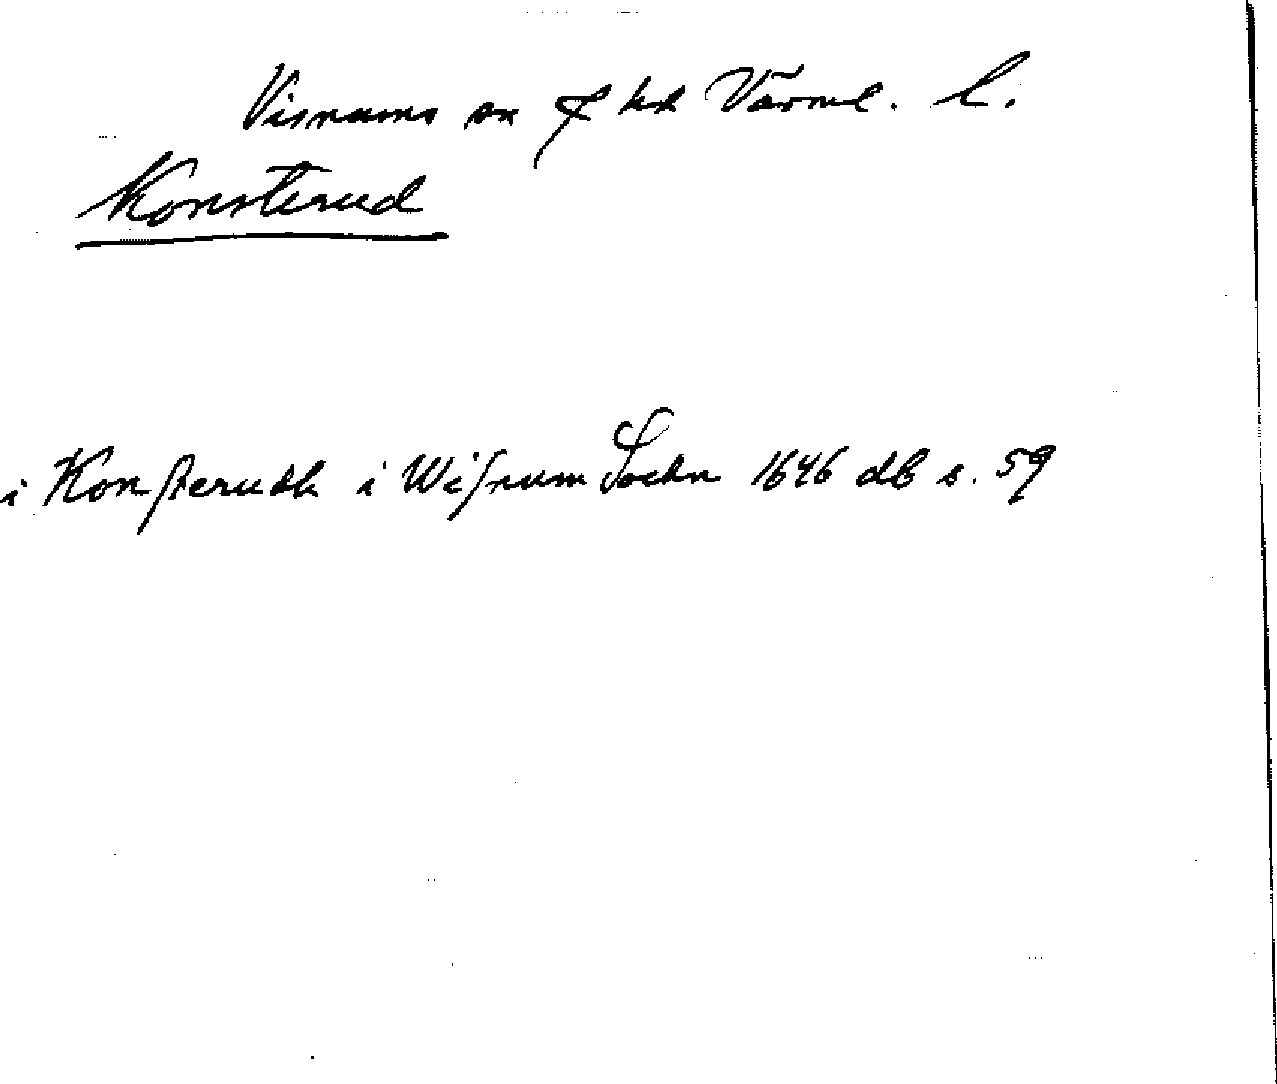 Visnums sn f hd Värml. l.
Konsterud
i Konsterudh i Wisnum Sochn 1646 db s. 59